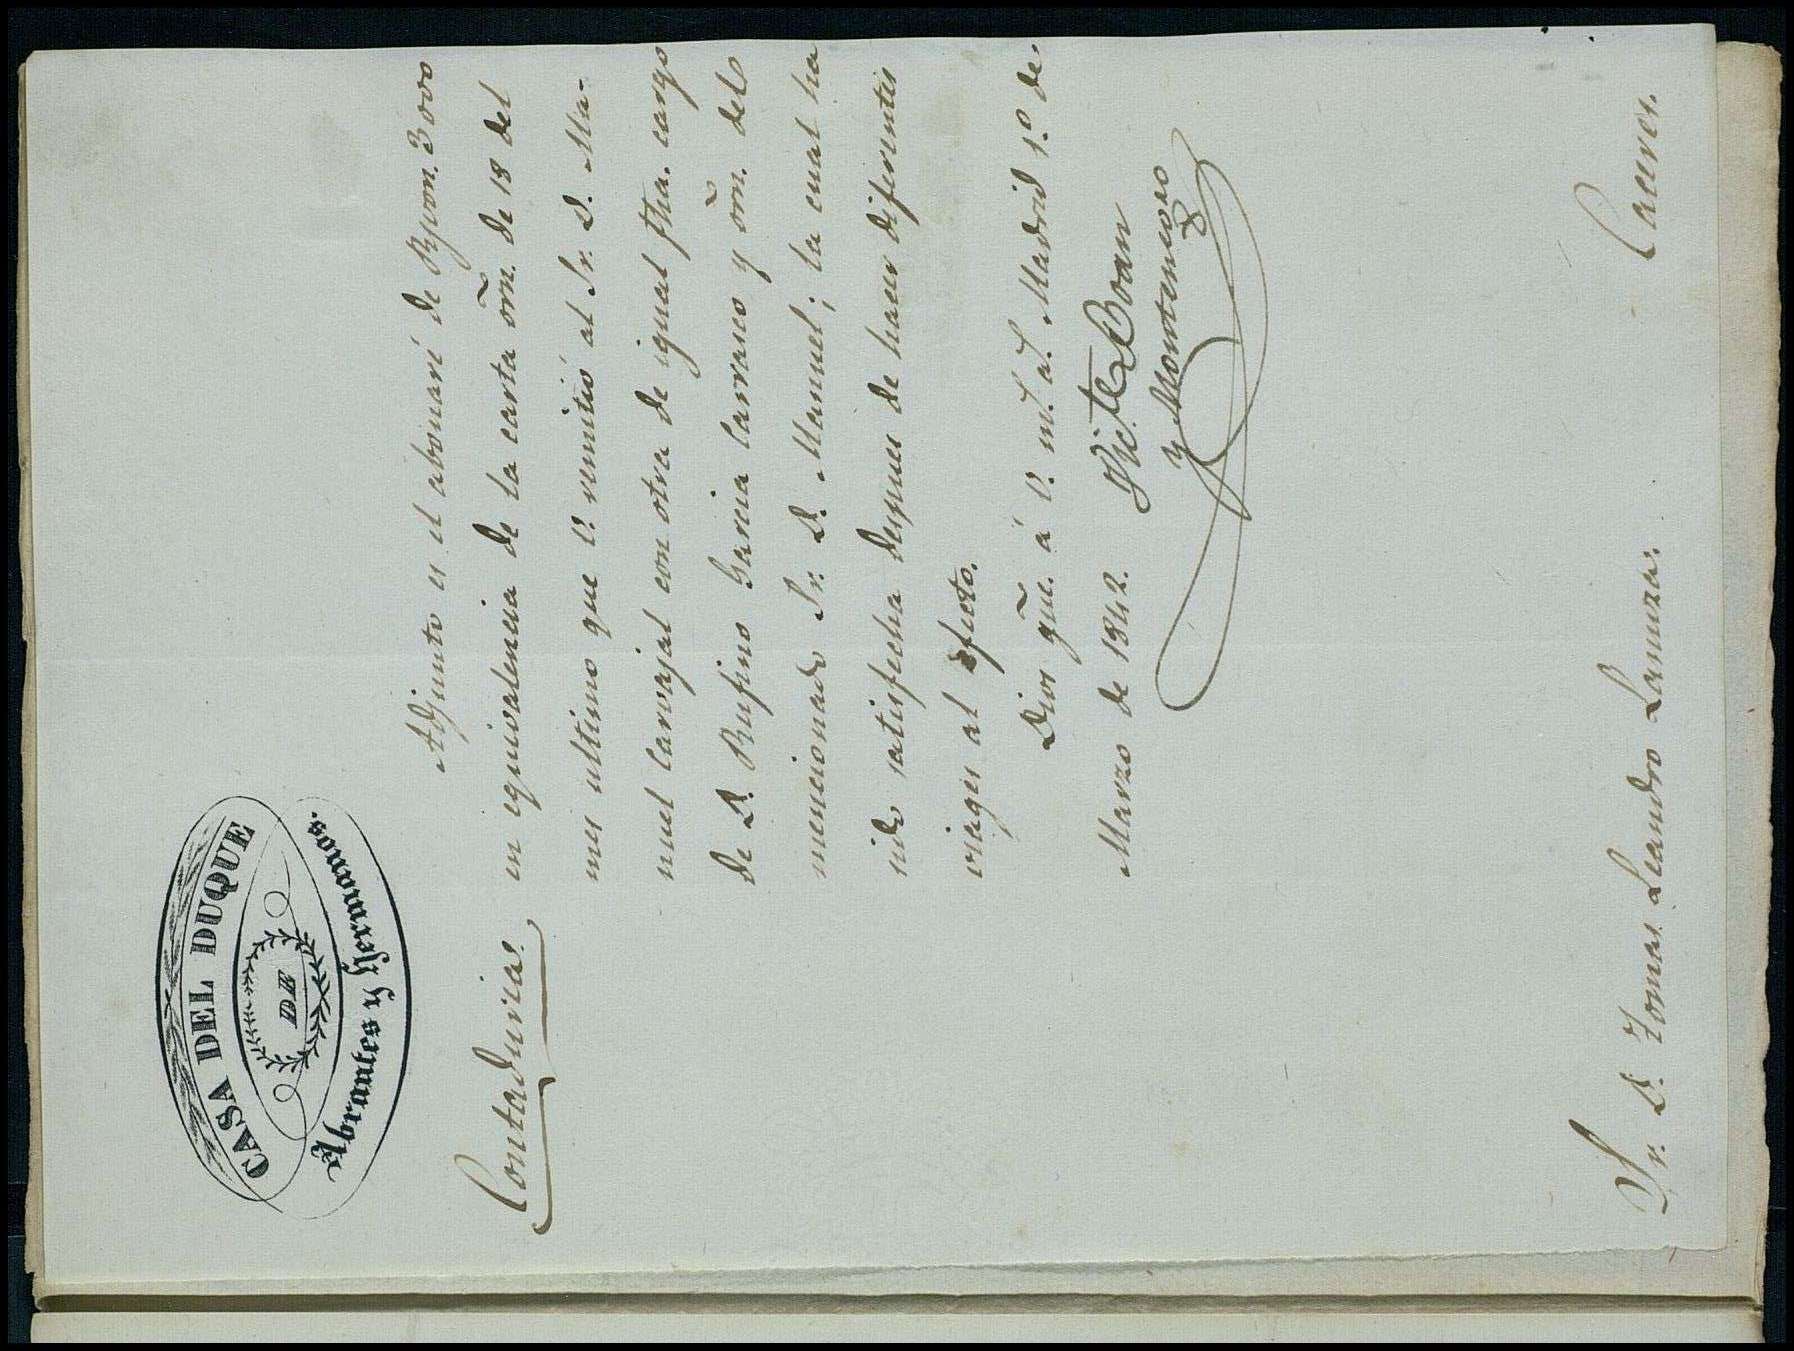 CASA DEL DUQUE
DE
Abrantes y Hermanos.
Contaduria.
Adjunto es el abonaré de Rsvon. 3000
en equivalencia de la carta orñ. de 18 del
mes ultimo que V. remitió al Sr. D. Ma-
nuel Carvajal con otra de igual fha. cargo
de D. Rufino Garcia Carrasco y orñ. del
mencionado Sr. D. Manuel; la cual ha
sido satisfecha despues de hacer diferentes
viages al efecto.
Dios gũe. á V. m.s a.s Madrid 1.º de
Marzo de 1842.
Vic.te Boan
y Montenegro
Sr. D. Tomas Leandro Lanuza.
Caceres.